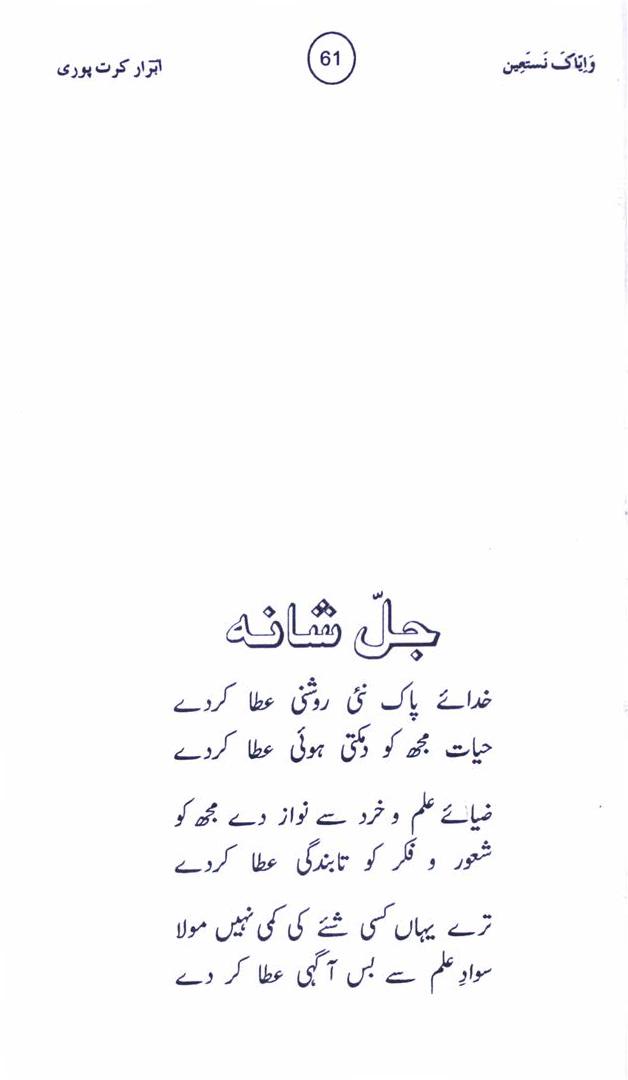 وَاِیّاکَ نَستَعِین
61
ابرار کرت پوری
جلّ شانہ
خدائے پاک نئی روشنی عطا کردے
حیات مجھ کو دمکتی ہوئی عطا کردے
ضیائے علم و خرد سے نواز دے مجھ کو
شعور و فکر کو تابندگی عطا کردے
ترے یہاں کسی شئے کی کمی نہیں مولا
سوادِ علم سے بس آگہی عطا کر دے